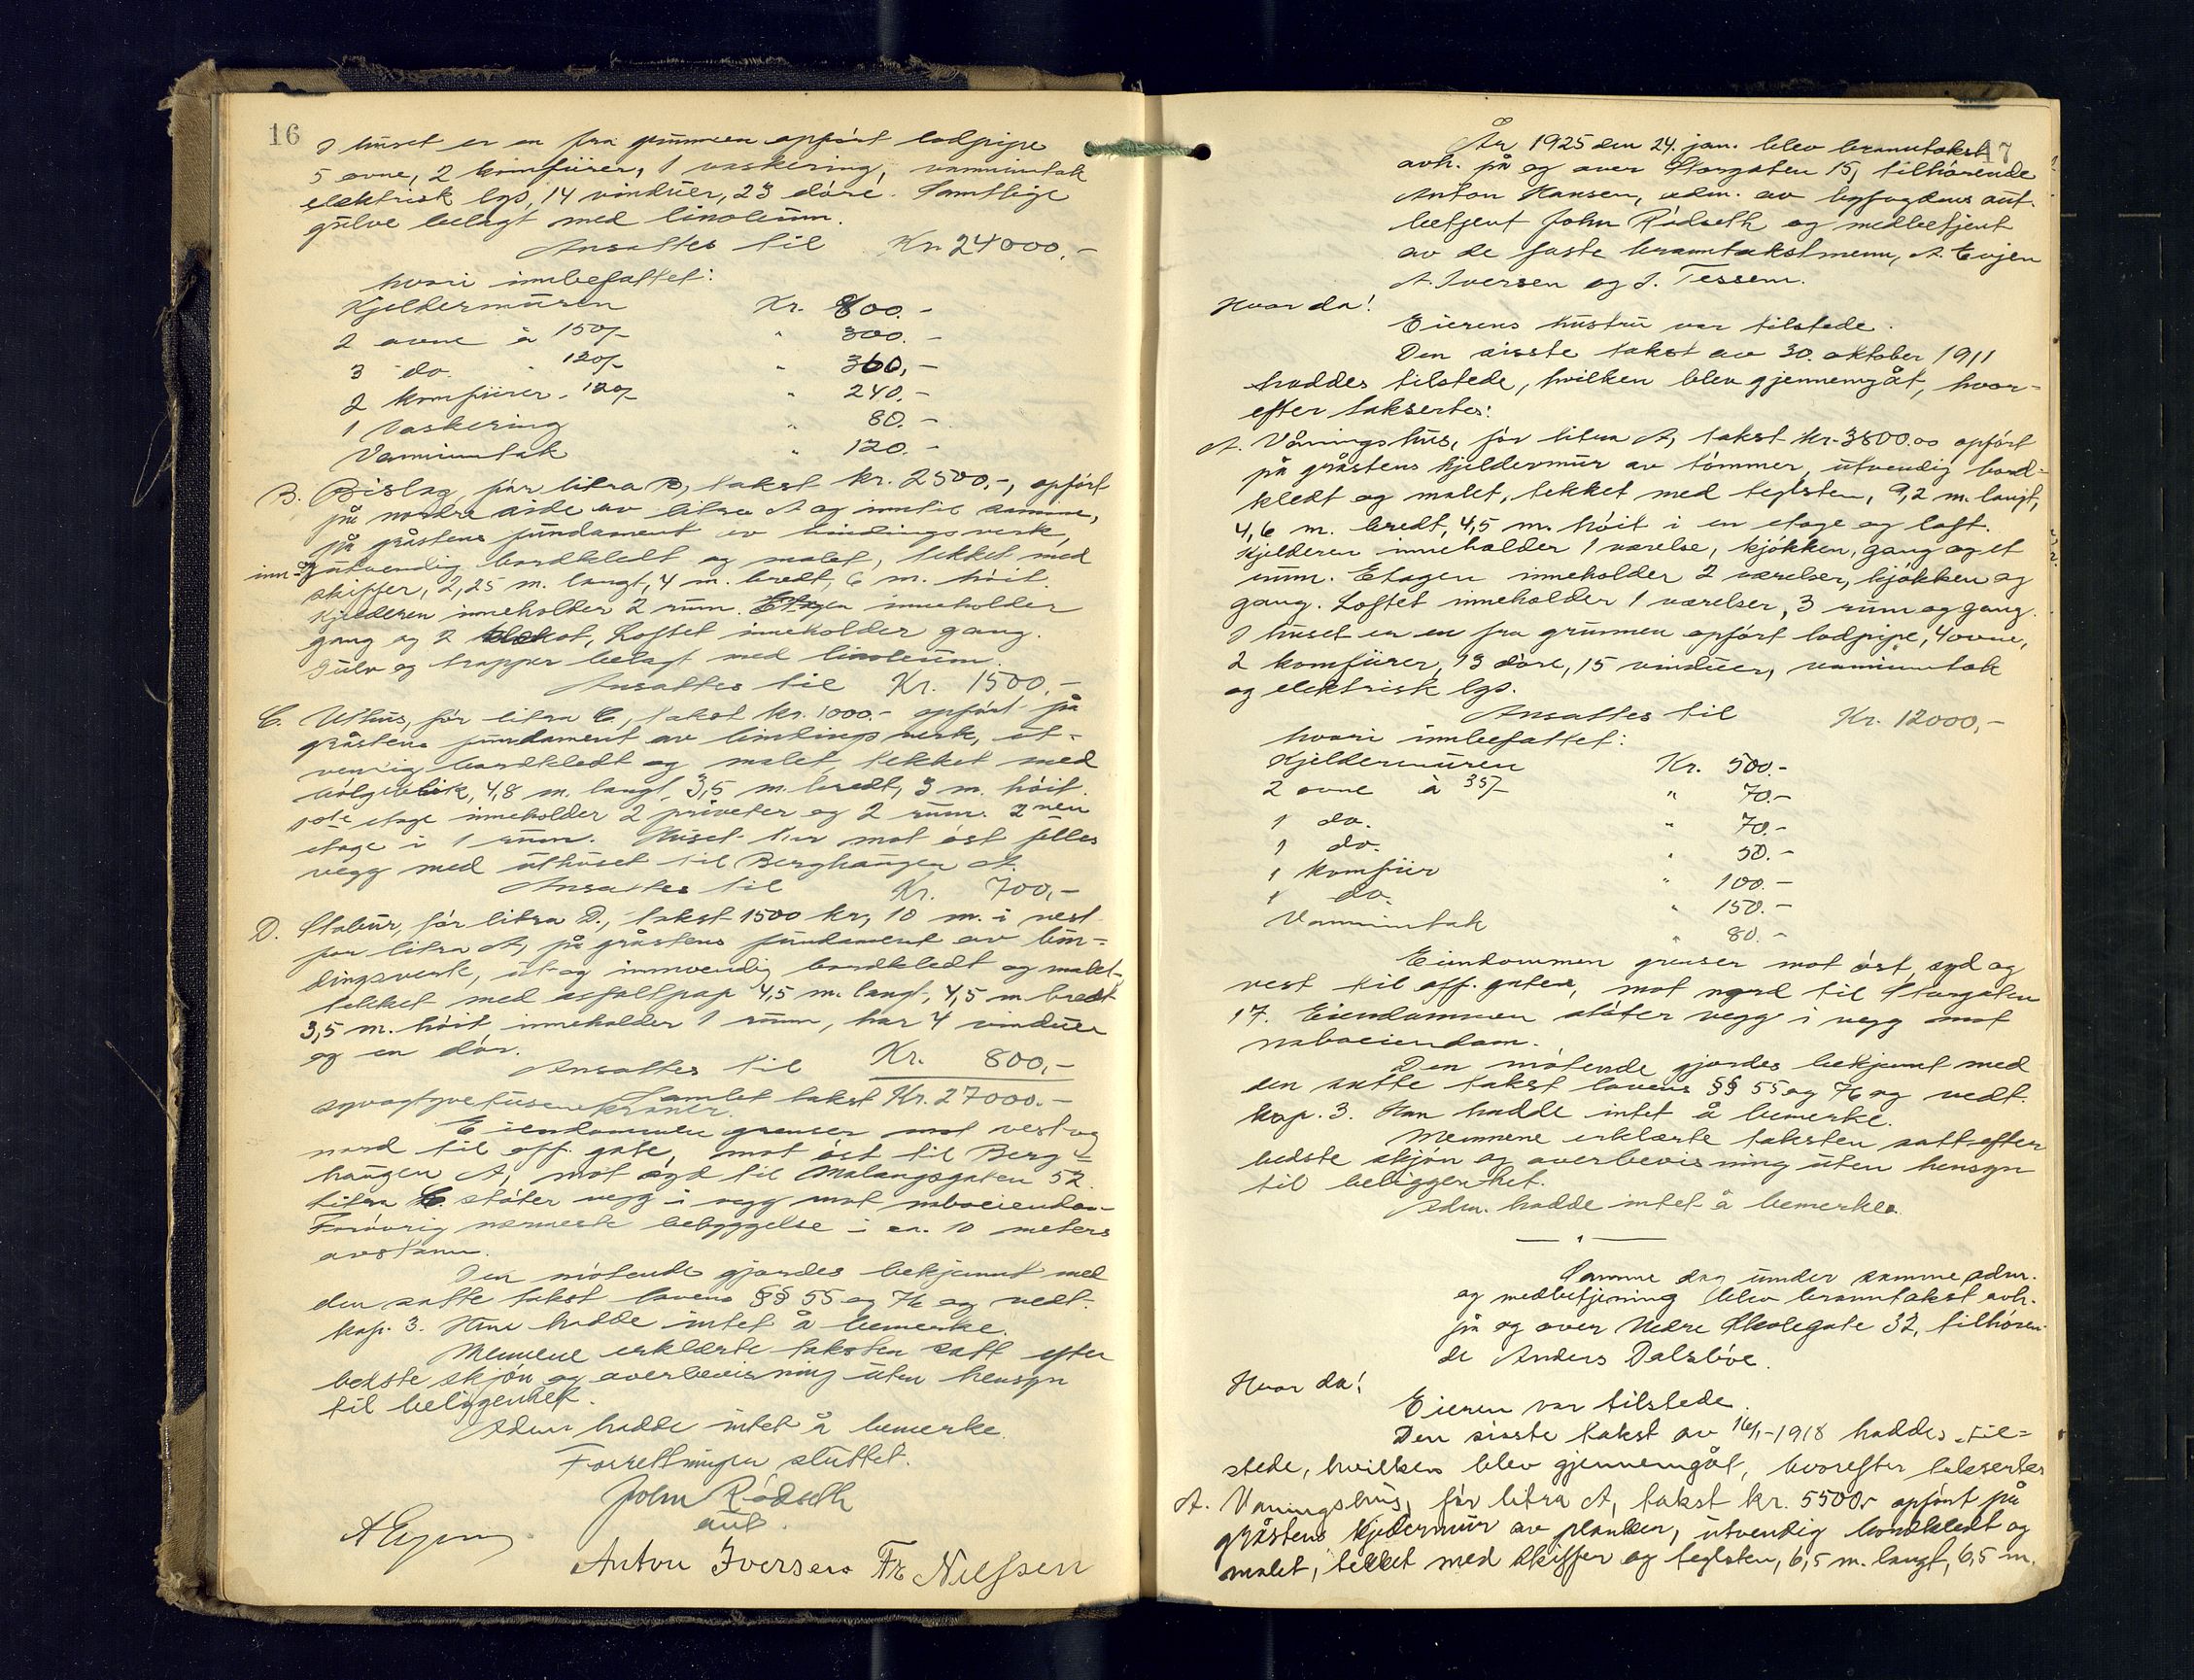 16
I huset er en fra grunnen opført lodpipe
5 ovne, 2 komfürer, 1 vaskering, vanninntak
elektrisk lys, 14 vindüer, 23 døre. Samtlige
gulve belagt med linoleum.
Ansattes til Kr. 24000,-
hvori innbefattet:
Kjeldermüren Kr. 800.-
2 ovne à 150/- " 300.-
3 do. " 120/- " 360,-
2 komfürer " 120/- " 240.-
1 Vaskering " 80.-
Vanninntak " 120.-
B. Bislag, før litra B, takst kr. 2500,-, opført
på nordre side av litra A og inntil samme,
på gråstens fundament av bindingsverk,
inn- og utvendig bordkledt og malet, tekket med
skiffer, 2,25 m. langt, 4 m. bredt, 6 m. höit.
Kjelderen inneholder 2 rüm. Etagen inneholder
gang og 2 klosot, Loftet inneholder gang.
Gülv og trapper belagt med linoleüm.
Ansattes til Kr. 1500,-
C. Uthüs, før litra C, takst kr. 1000.- opført på
gråstens fundament av bindings verk, üt-
vendig bordkledt og malet, tekket med
bölgeblik, 4,8 m. langt, 3,5 m. bredt, 3 m. höit.
1ste etage inneholder 2 priveter og 2 rüm. 2nen
etage i 1 rüm. Huset har mot öst felles
vegg med üthuset til Berghaugen A.
Ansattes til Kr. 700,-
D. Stabür, før litra D., takst 1500 kr, 10 m. i vest
for litra A, på gråstens fundament av bin-
dingsverk, üt- og innvendig bordkledt og malet,
tekket med asfaltpap 4,5 m. langt, 4,5 m bredt
3,5 m. höit, inneholder 1 rüm, har 4 vindüer
og en dør.
Ansattes til Kr. 800,-
Samlet takst Kr. 27000.-
syvogtyvetusenkroner.
Eiendommen grenser mot vest og
nord til off. gate, mot öst til Berg-
haugen A, mot syd til Malangsgaten 52.
Litra C. stöter vegg i vegg mot naboeiendom
Forøvrig nærmeste bebyggelse i ca. 10 meters
avstann.
Den mötende gjordes bekjennt med
den satte takst lovens §§ 55 og 76 og vedt.
kap. 3. Han hadde intet å bemerke.
Mennene erklærte taksten satt efter
bedste skjön og overbevisning üten hensyn
til beliggenhet.
Adm. hadde intet å bemerke.
Forretningen slüttet.
John Rödseth
aut.
A Evjen
Anton Iversen Fr. Nilssen
17
År 1925 den 24. jan. blev branntakst
avh. på og over Storgaten 15, tilhörende
Anton Hansen, adm. av byfogdens aut.
betjent John Rödseth og medbetjent
av de faste branntakstmenn, A. Evjen
A. Iversen og J. Tessem.
Hvor da!
Eierens hüstrü var tilstede.
Den sisste takst av 30. oktober 1911
haddes tilstede, hvilken blev gjennemgåt, hvor-
efter taksertes:
A. Våningshüs, för litra A, takst kr. 3800.00 opført
på gråstens kjeldermür av tömmer, ütvendig bord-
kledt og malet, tekket med teglsten, 9,2 m. langt,
4,6 m. bredt, 4,5 m. höit i en etage og loft.
Kjelderen inneholder 1 værelse, kjökken, gang og et
rüm. Etagen inneholder 2 værelser, kjökken og
gang. Loftet inneholder 1 værelser, 3 rüm og gang.
I hüset er en fra grunnen opfört lodpipe, 4 ovne,
2 komfürer, 13 döre, 15 vindüer, vanninntak
og elektrisk lys.
Ansattes til Kr. 12000,-
hvori innbefattet:
Kjeldermüren Kr. 500.-
2 ovne à 35/- " 70.-
1 do. " 70.-
1 do. " 50.-
1 komfür " 100.-
1 do. " 150.-
Vanninntak " 80.-
Eiendommen grenser mot öst, syd og
vest til off. gater, mot nord til Storgaten
17. Eiendommen stöter vegg i vegg mot
naboeiendom.
Den mötende gjordes bekjennt med
den satte takst lovens §§ 55 og 76 og vedt.
kap. 3. Han hadde intet å bemerke.
Mennene erklærte taksten satt efter
bedste skjön og overbevisning üten hensyn
til beliggenhet.
Adm. hadde intet å bemerke.
Samme dag ünder samme adm.
og medbetjening blev branntakst avh.
på og over Nedre Skolegate 32, tilhören-
de Anders Dalslöve.
Hvor da!
Eieren var tilstede.
Den sisste takst av 16/1-1918 haddes til-
stede, hvilken blev gjennemgåt, hvorefter taksertes
A. Vaningshüs, för litra A, takst kr. 5500,- opfört på
gråstens kjeldermür av planker, ütvendig bordkledt og
malet, tekket med skiffer og teglsten, 6,5 m. langt, 6,5 m.